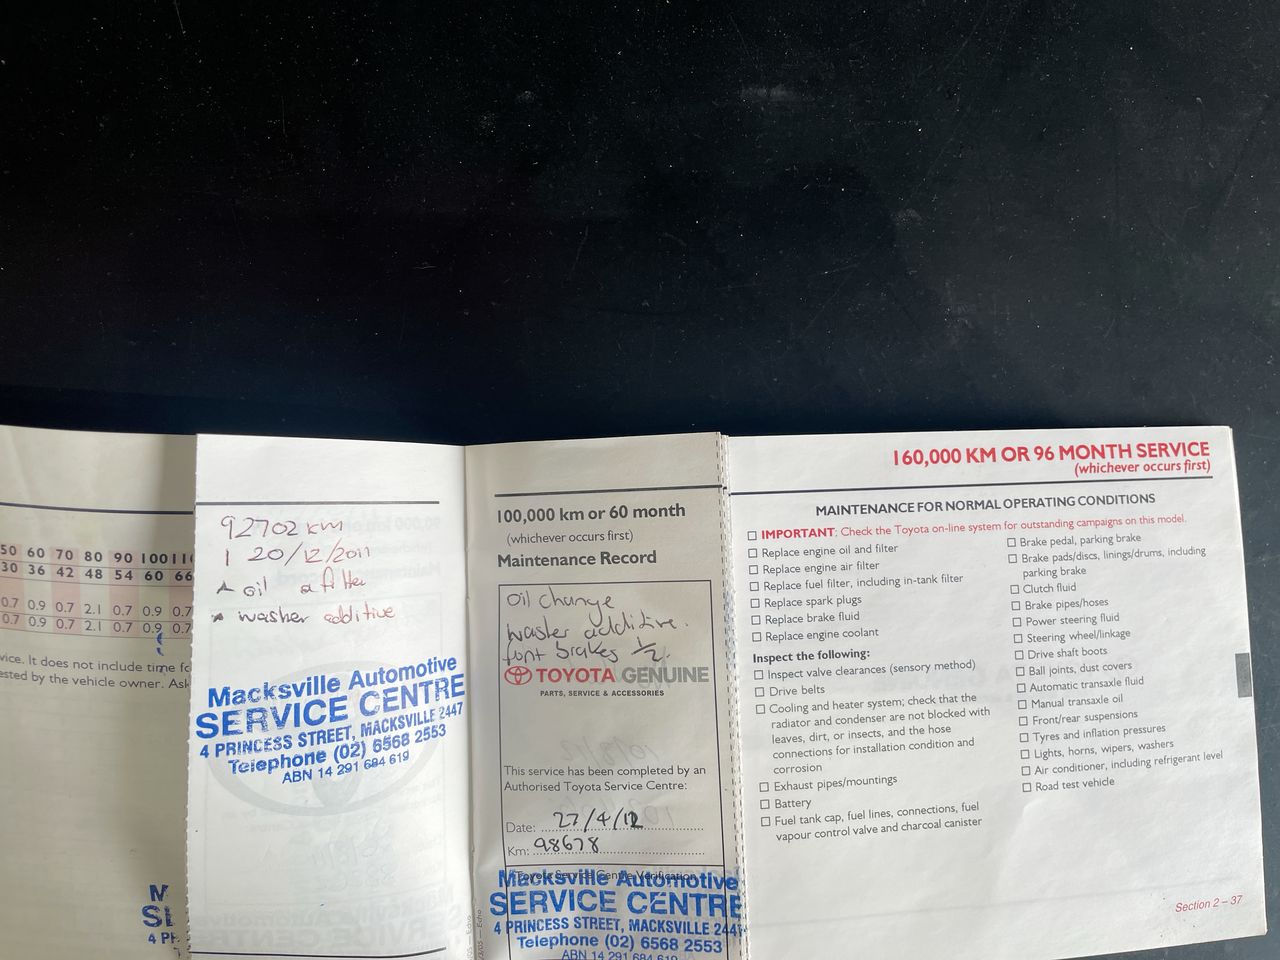 50 60 70 80 90 100 11
30 36 42 48 54 60 66
0.7 0.9 0.7 2.1 0.7 0.9 0.7
0.7 0.9 0.7 2.1 0.7 0.9 0.7
vice. It does not include time fo
ested by the vehicle owner. Ask
M
4 PR
92702 km
20/12/2011
oil & filter
washer additive
Macksville Automotive
SERVICE CENTRE
4 PRINCESS STREET, MACKSVILLE 2447
Telephone (02) 6568 2553
ABN 14 291 684 619
100,000 km or 60 month
(whichever occurs first)
Maintenance Record
oil change
washer additive.
font brakes 1/2.
TOYOTA GENUINE
PARTS, SERVICE & ACCESSORIES
This service has been completed by an
Authorised Toyota Service Centre:
Date: 27/4/12
Km: 98678
Toyota Service Centre Verification
Macksville Automotive
SERVICE CENTRE
4 PRINCESS STREET, MACKSVILLE 2447
Telephone (02) 6568 2553
ABN 14 291 684 619
160,000 KM OR 96 MONTH SERVICE
(whichever occurs first)
MAINTENANCE FOR NORMAL OPERATING CONDITIONS
IMPORTANT: Check the Toyota on-line system for outstanding campaigns on this model.
Replace engine oil and filter
Replace engine air filter
Replace fuel filter, including in-tank filter
Replace spark plugs
Replace brake fluid
Replace engine coolant
Inspect the following:
Inspect valve clearances (sensory method)
Drive belts
Cooling and heater system; check that the
radiator and condenser are not blocked with
leaves, dirt, or insects, and the hose
connections for installation condition and
corrosion
Exhaust pipes/mountings
Battery
Fuel tank cap, fuel lines, connections, fuel
vapour control valve and charcoal canister
Brake pedal, parking brake
Brake pads/discs, linings/drums, including
parking brake
Clutch fluid
Brake pipes/hoses
Power steering fluid
Steering wheel/linkage
Drive shaft boots
Ball joints, dust covers
Automatic transaxle fluid
Manual transaxle oil
Front/rear suspensions
Tyres and inflation pressures
Lights, horns, wipers, washers
Air conditioner, including refrigerant level
Road test vehicle
Section 2 – 37